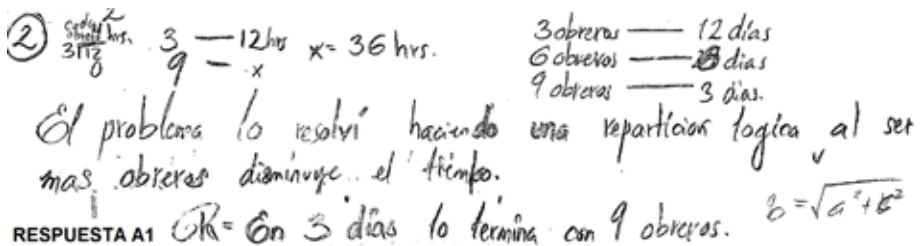 ② 3 — 12 hrs x = 36 hrs.
9 — x
3 obreros — 12 días
6 obreros — días
9 obreros — 3 días.
El problema lo resolví haciendo una reparticion logica al ser
mas obreros disminuye el tiempo.
RESPUESTA A1 R= En 3 días lo termina con 9 obreros. b = √a²+c²